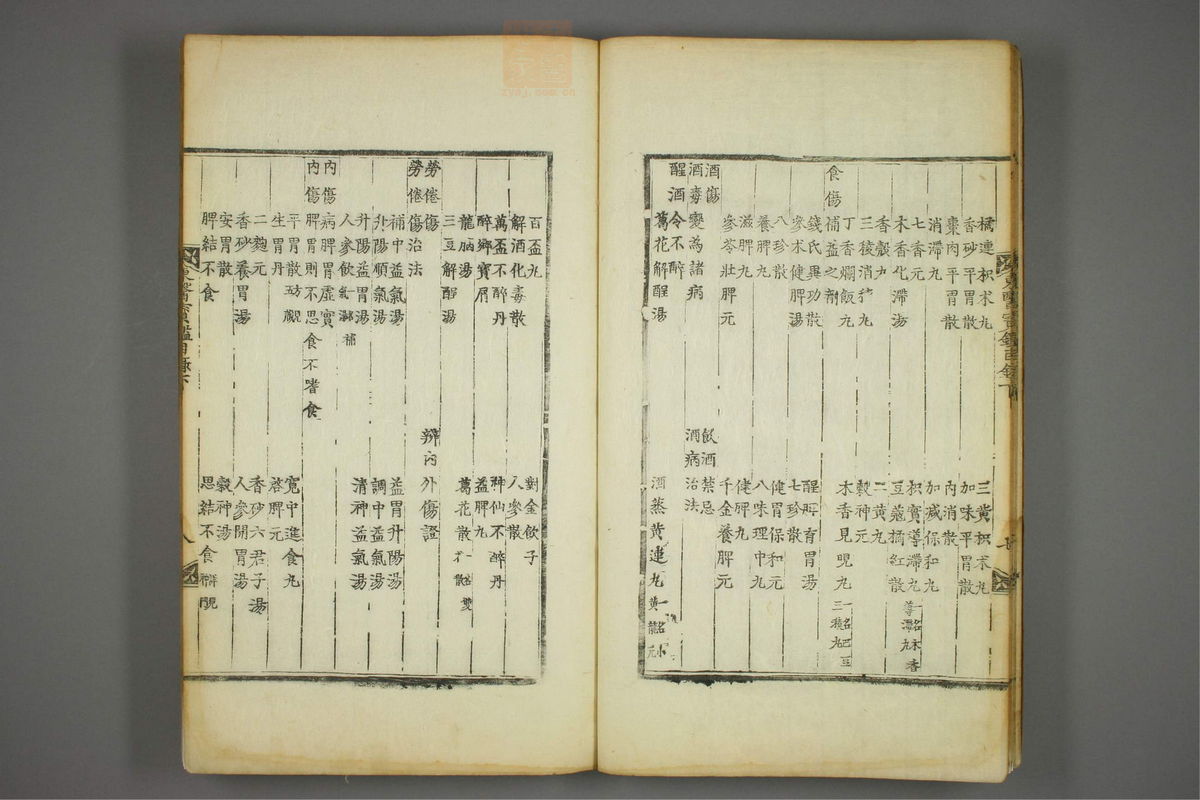 橘連枳朮丸　三黃枳朮丸
香砂平胃散　加味平胃散
棗肉平胃散　內消散
消滯丸　加減保和丸
七香元　枳實導滯丸 一名木香導滯丸
木香化滯湯　豆蔻橘紅散
香殼丸　二黃丸
三稜消積丸　穀神元
丁香爛飯丸　木香見晛丸 一名巴豆三稜丸
食傷補益之劑
錢氏異功散　醒脾育胃湯
參朮健脾湯　七珍散
八珍散　健胃保和元
養脾丸　八味理中丸
滋脾丸　健脾丸
參苓壯脾元　千金養脾元
酒傷　飲酒禁忌
酒毒變為諸病　酒病治法
醒酒令不醉
葛花解酲湯　酒蒸黃連丸 一名小黃龍元
百盃丸　對金飲子
解酒化毒散　人參散
萬盃不醉丹　神仙不醉丹
醉鄉寶屑　益脾丸
龍腦湯　葛花散 一名雙花散
三豆解酲湯
勞倦傷　辨內外傷證
勞倦傷治法
補中益氣湯　益胃升陽湯
升陽順氣湯　調中益氣湯
升陽益胃湯　清神益氣湯
人參飲
內傷病脾胃虛實
內傷脾胃則不思食不嗜食
平胃散　寬中進食丸
生胃丹　啓脾元
二麴元　香砂六君子湯
香砂養胃湯　人參開胃湯
安胃散　穀神湯
脾結不食　思結不食
東醫寶鑑目錄下　八